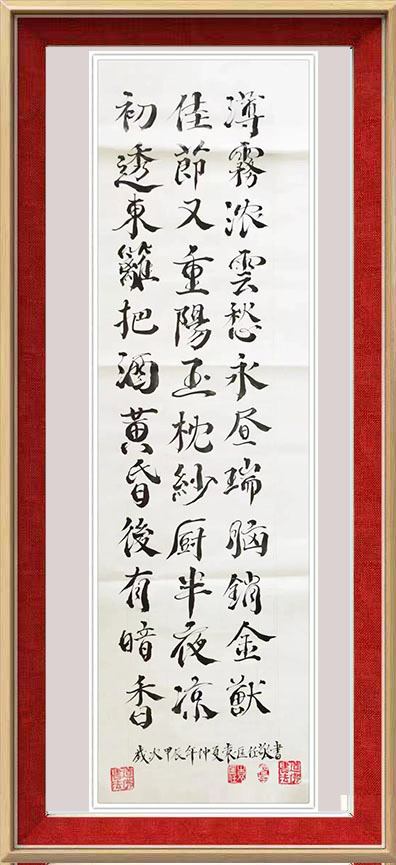 薄霧浓雲愁永昼瑞脑銷金獸
佳節又重陽玉枕紗厨半夜凉
初透東籬把酒黄昏後有暗香
歲次甲辰年仲夏敬書